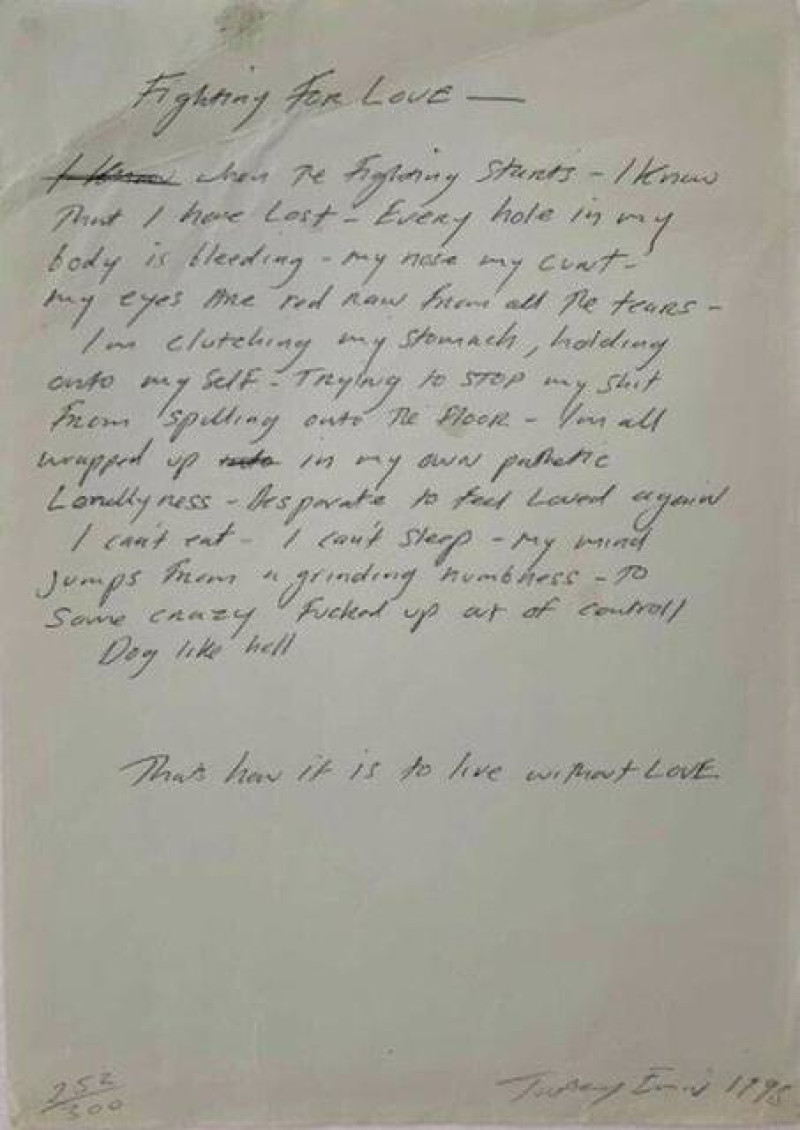 Fighting For LOVE —
I Know when The Fighting Starts - I Know
That I have Lost - Every hole in my
body is bleeding - my nose my cunt -
my eyes Are red raw from all The tears -
I'm clutching my stomach, holding
onto my self - Trying to STOP my shit
from spilling onto The Floor - I'm all
wrapped up in my own pathetic
Lonellyness - Desparate to feel Loved again
I can't eat - I can't Sleep - my mind
jumps from a grinding numbness - TO
Some crazy Fucked up out of controll
Dog like hell
Thats how it is to live without LOVE
252/300
Tracey Emin 1995